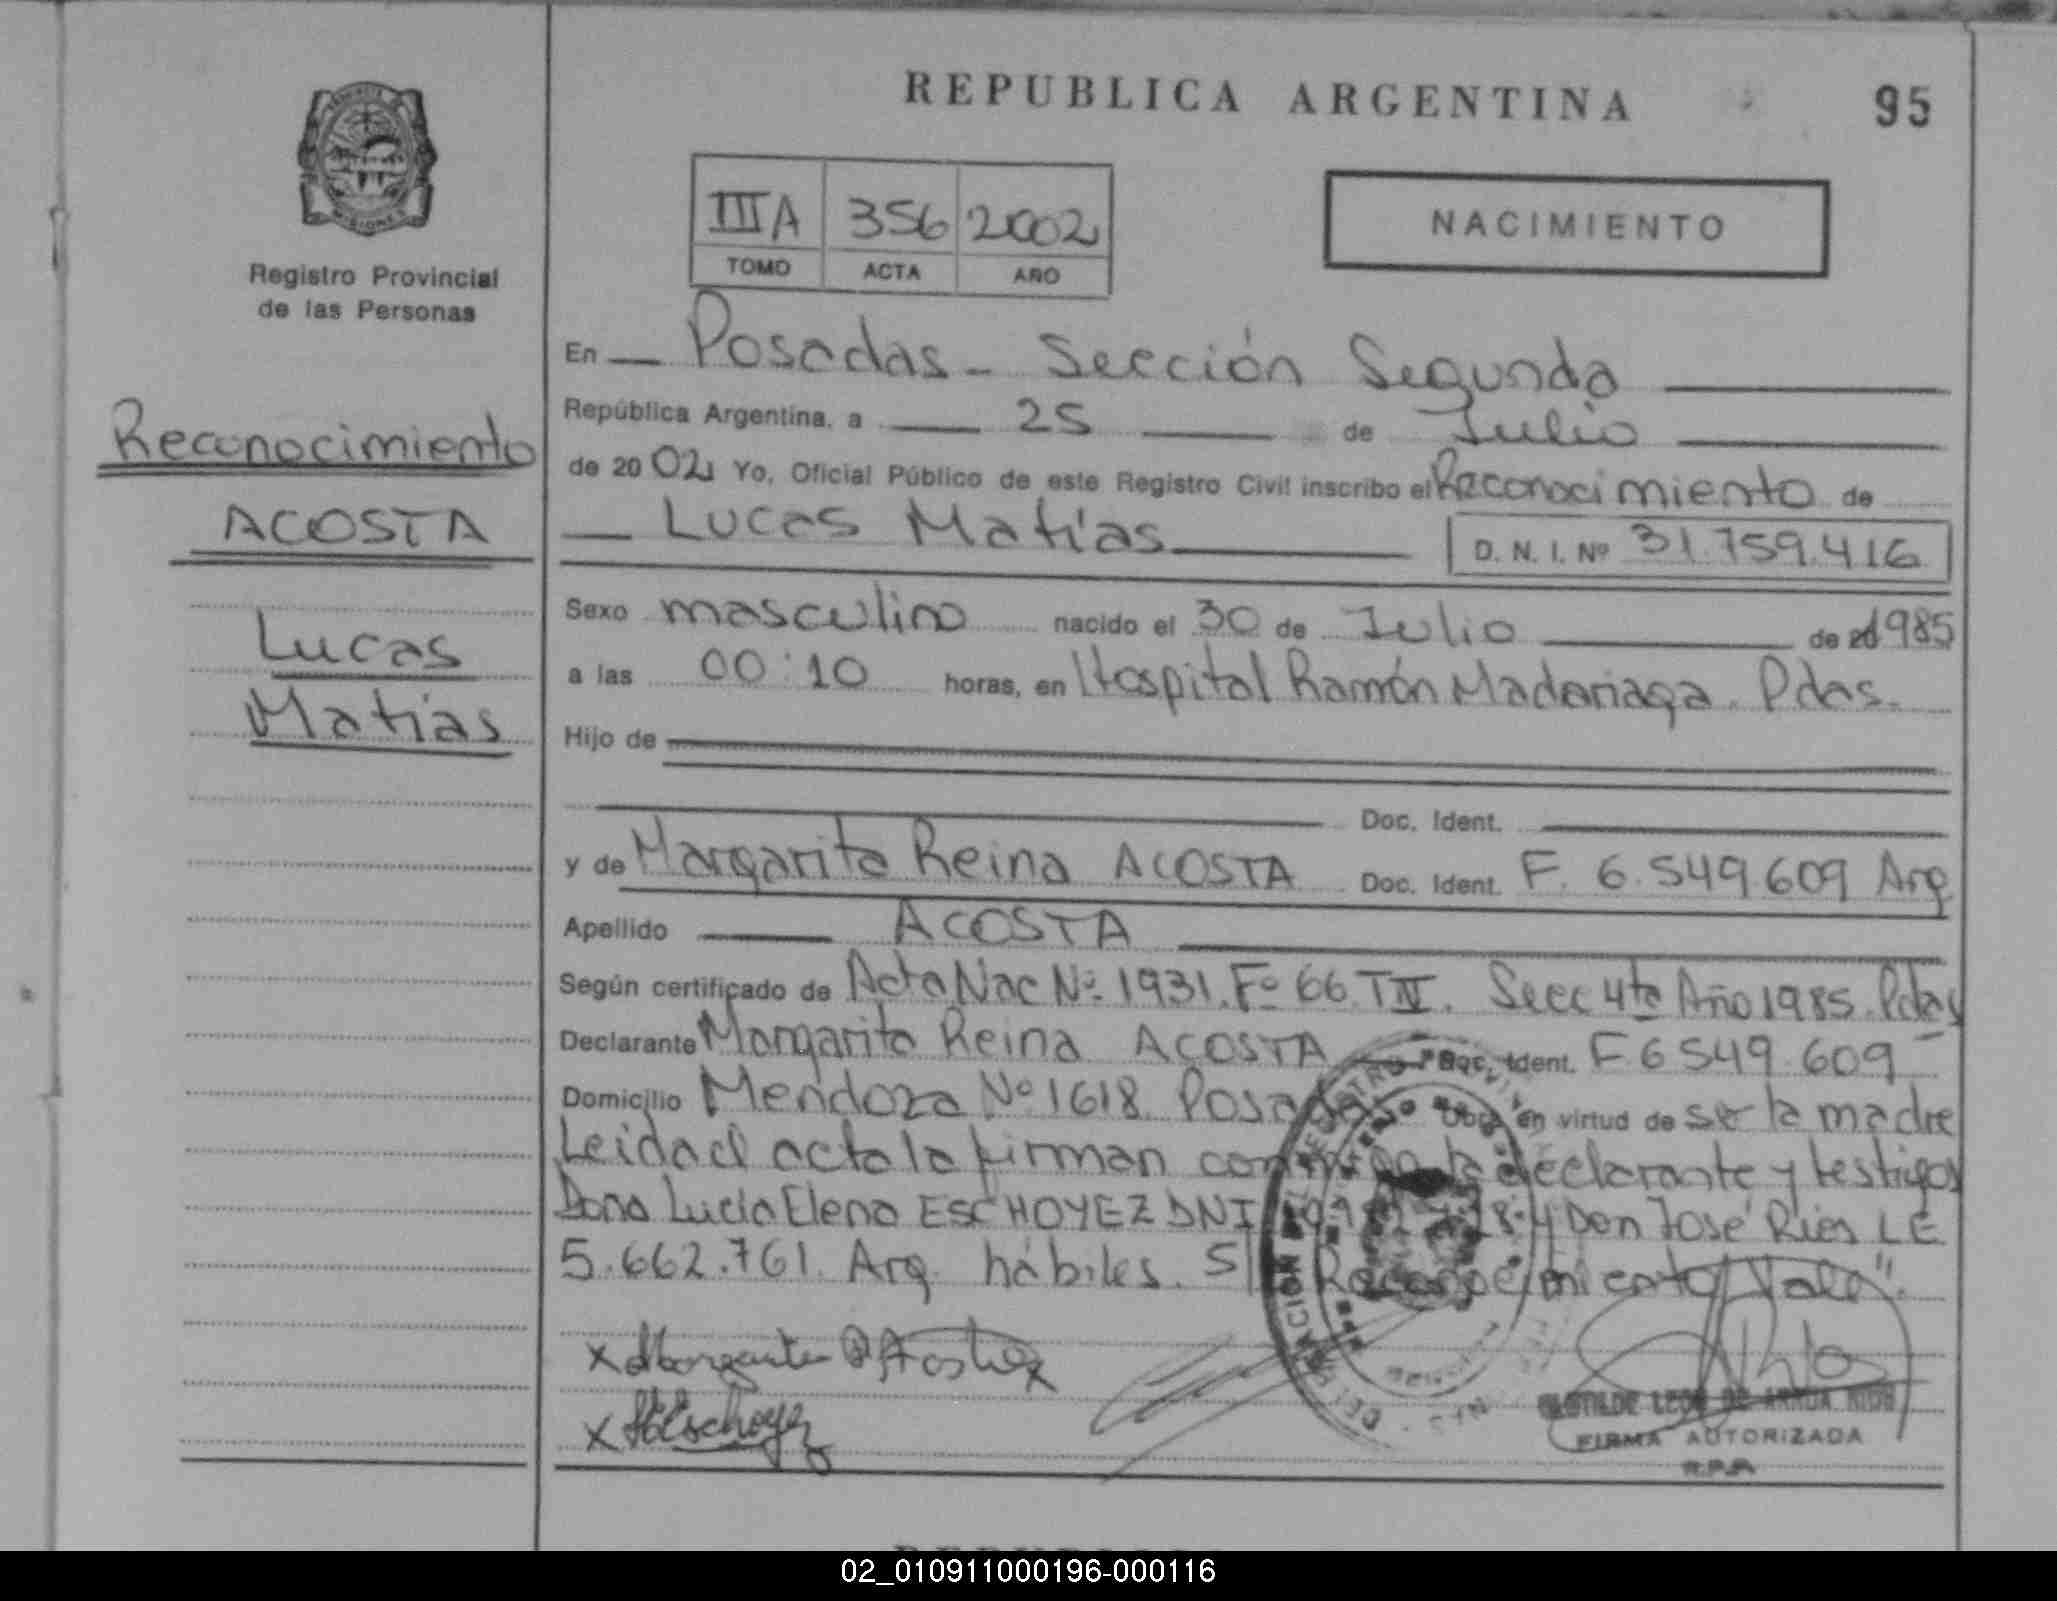 REPUBLICA ARGENTINA
95
IIIA 356 2002
TOMO ACTA AÑO
NACIMIENTO
MISIONES
Registro Provincial
de las Personas
Reconocimiento
ACOSTA
Lucas
Matías
En Posadas - Sección Segunda
República Argentina, a 25 de Julio
de 2002 Yo, Oficial Público de este Registro Civil inscribo el Reconocimiento de
Lucas Matías D. N. I. Nº 31.759.416
Sexo masculino nacido el 30 de Julio de 1985
a las 00:10 horas, en Hospital Ramón Madariaga. Pdas.
Hijo de
Doc. Ident.
y de Margarita Reina ACOSTA Doc. Ident. F. 6.549.609 Arg
Apellido ACOSTA
Según certificado de Acta Nac Nº 1931. Fº 66. T IV. Secc 4ta Año 1985. Pdas
Declarante Margarita Reina ACOSTA Doc. Ident. F 6549.609
Domicilio Mendoza Nº 1618. Posadas Obra en virtud de ser la madre
Leida el acta la firman conmigo la declarante y testigos
Doña Lucia Elena ESCHOYEZ DNI y Don José Rios LE
5.662.761. Arg. hábiles. S/ Reconocimiento "Vale".
x Margarita R Acosta
x Eschoyez
CLOTILDE LEON DE ARRUA RIOS
FIRMA AUTORIZADA
R.P.P.
02_010911000196-000116